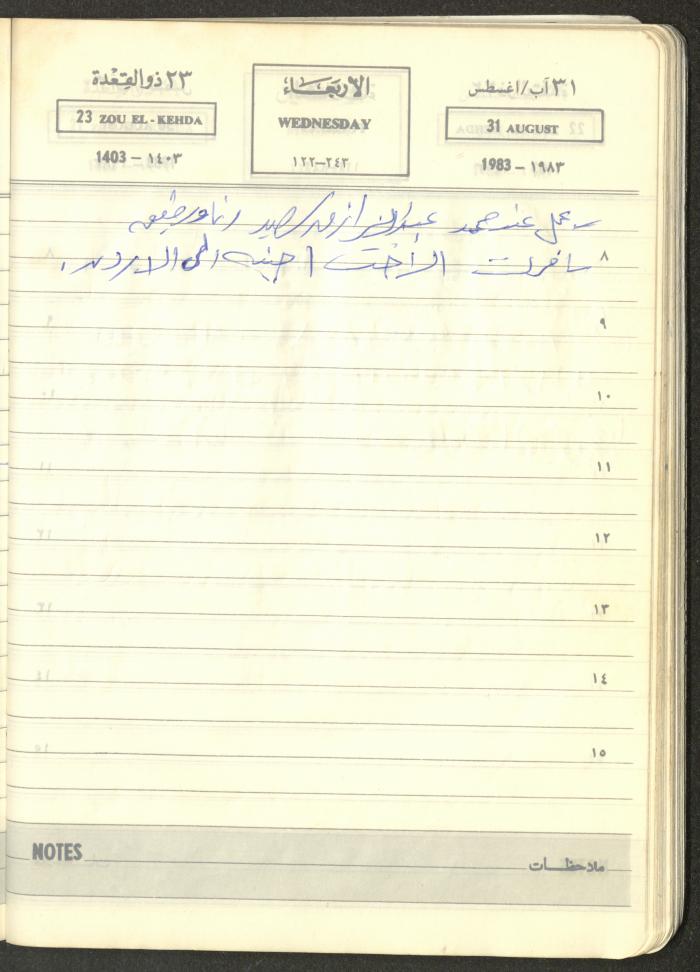 ٢٣ ذوالقِعْدة
23 ZOU EL-KEHDA
1403 – ١٤٠٣
الأربعَاء
WEDNESDAY
١٢٢–٢٤٣
٣١ آب/اغسطس
31 AUGUST
1983 – ١٩٨٣
عمل عند محمد
سافرت الأخت الى الاردن.
٨
٩
١٠
١١
١٢
١٣
١٤
١٥
NOTES
ملاحظات